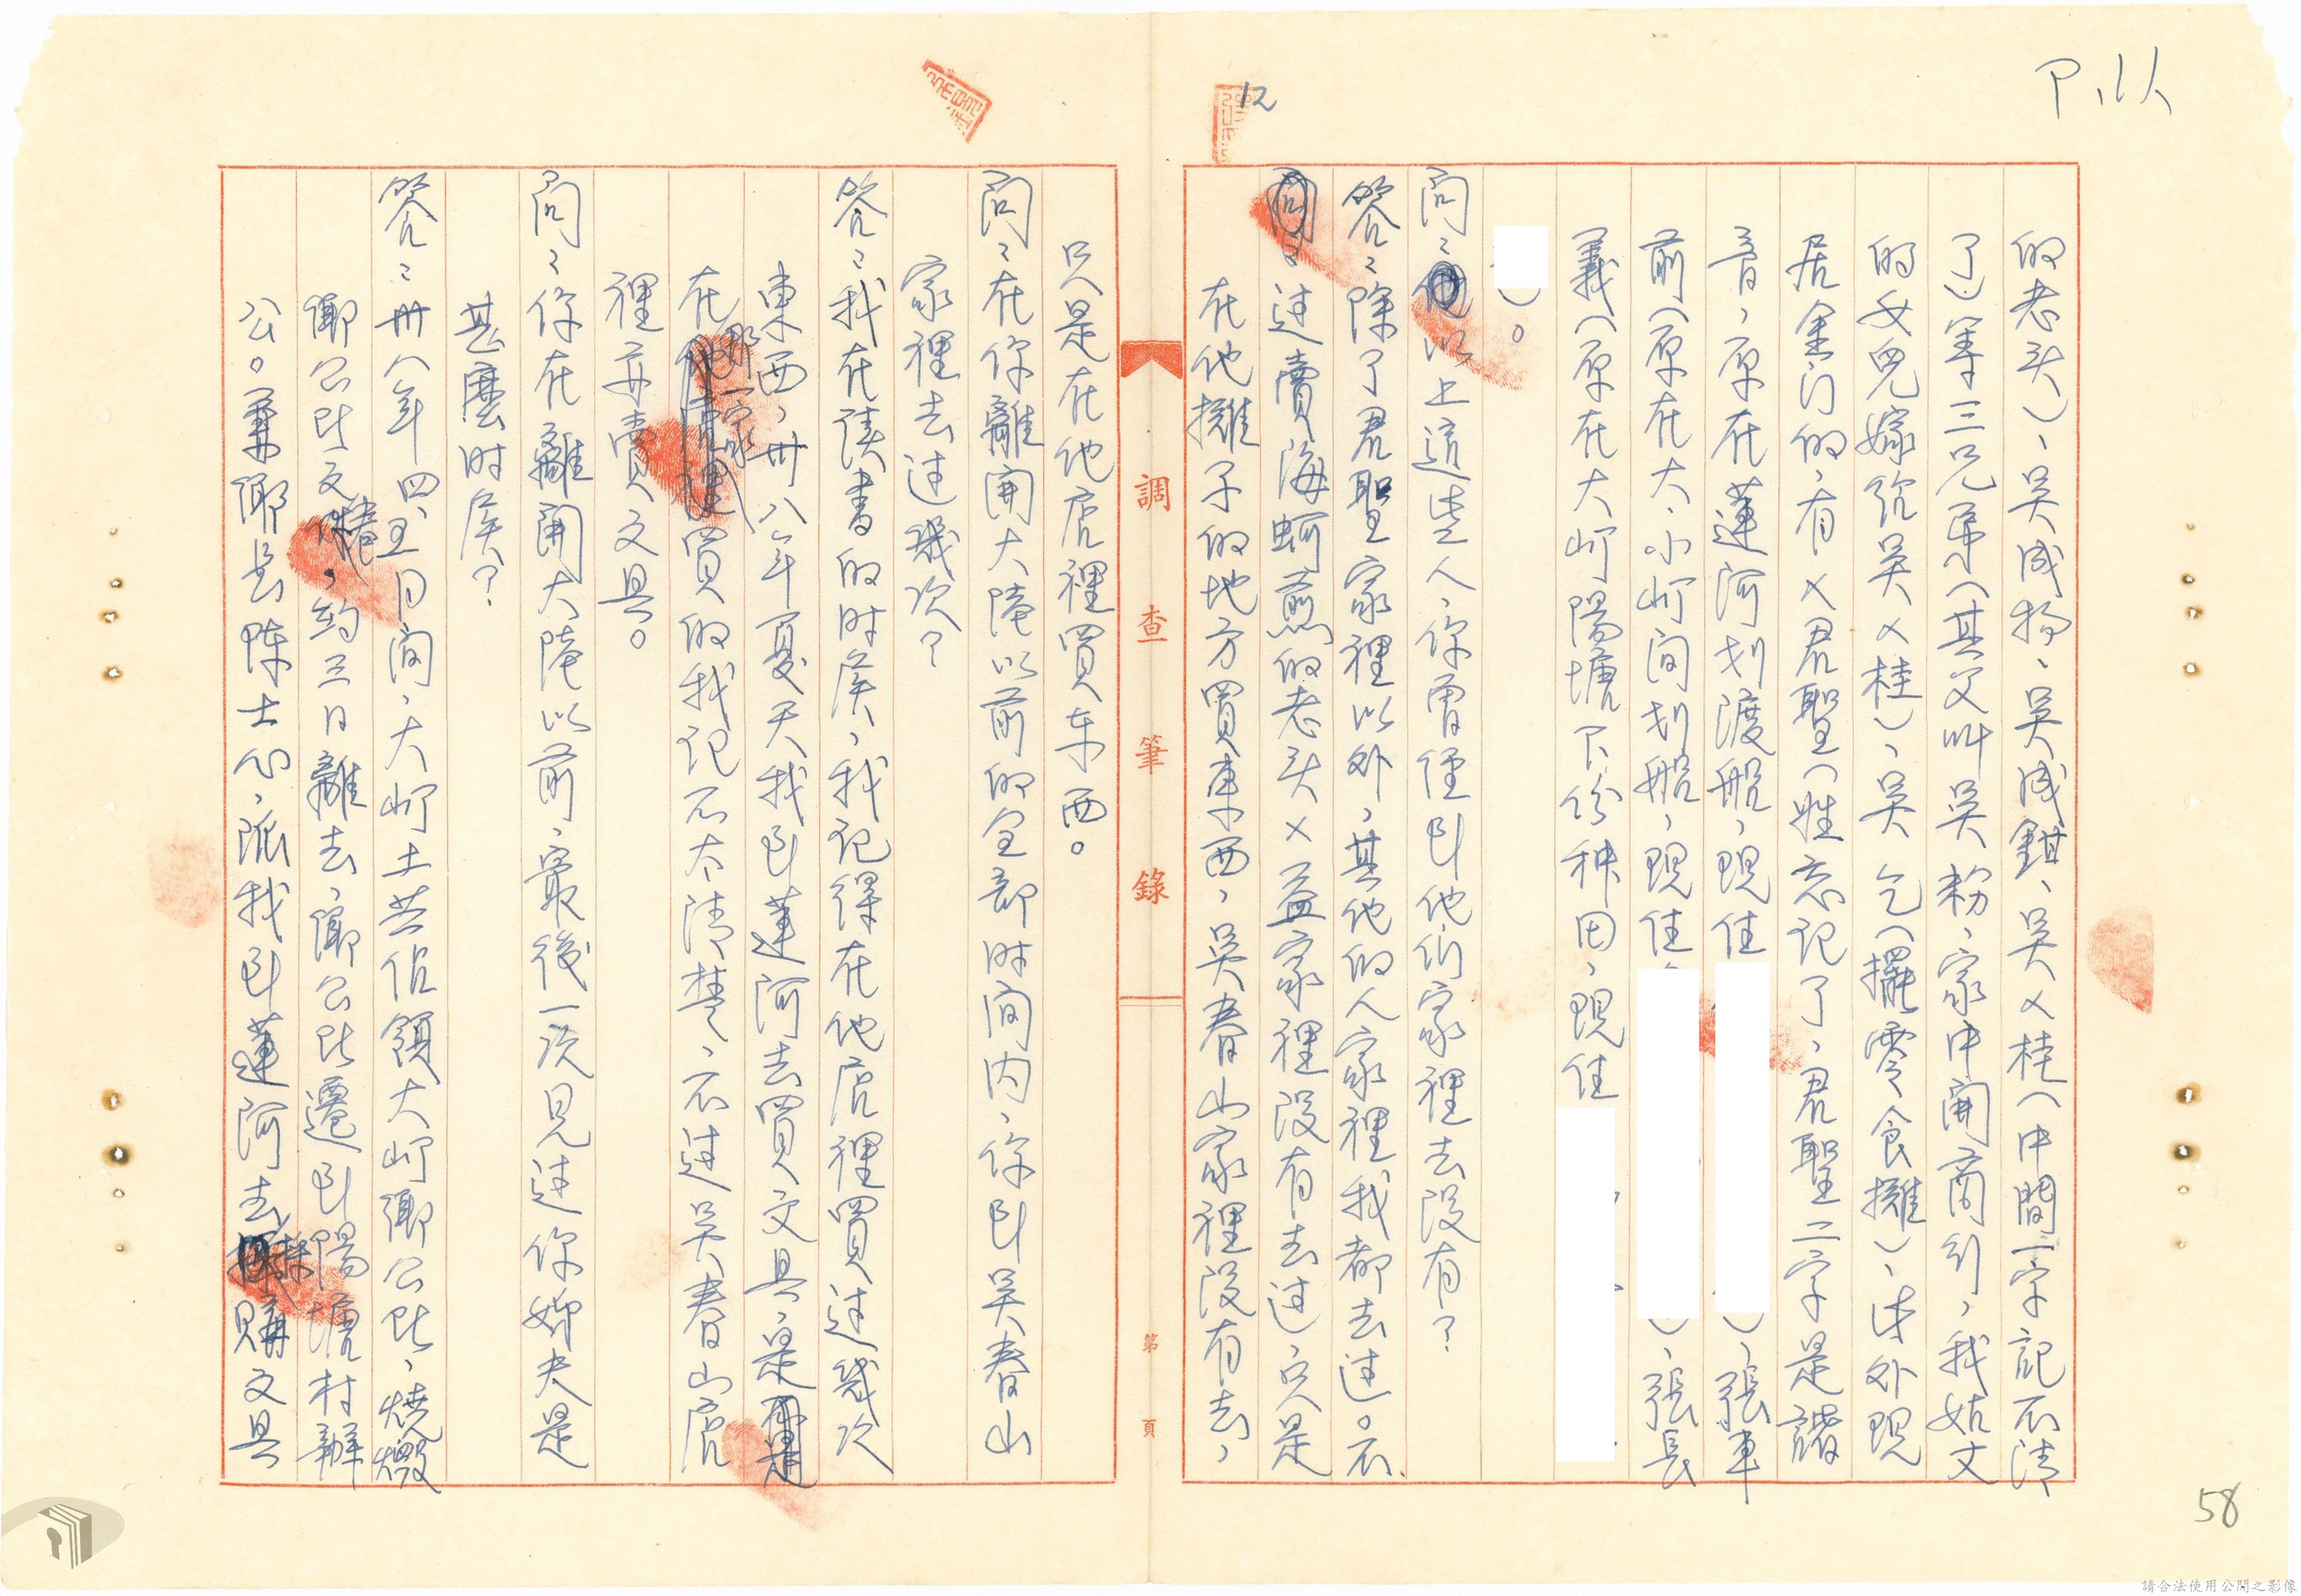 P.12
12
的老头)、吳成務、吳成鉗、吳乂桂(中間一字記不清
了)等三兄弟(其父叫吳粉、家中開商行,我姑丈
的女兒嫁給吳乂桂)、吳乞(擺零食攤)、此外現
居金门的,有乂君聖(姓忘記了,君聖二字是諧
音,原在蓮河划渡船,現住
)、張車
前(原在大、小岞间划船,現住
)、張長
義(原在大岞陽塘下份种田,現住
)。
问:以上這些人,你曾經到他们家裡去沒有?
答:除了君聖家裡以外,其他的人家裡我都去过。不
过賣海蚵煎的老头乂益家裡沒有去过,只是
在他攤子的地方買東西,吳春山家裡沒有去,
調查筆錄
第 頁
只是在他店裡買东西。
问:在你離開大陸以前的全部时间内,你到吳春山
家裡去过幾次?
答:我在读書的时侯,我记得在他店裡買过幾次
東西,卅八年夏天我到蓮河去買文具,是
在那一家買的我记不太清楚,不过吳春山店
裡有賣文具。
问:你在離開大陸以前,最後一次見过你姊夫是
甚麼时侯?
答:卅八年四、五月间,大岞土共佔領大岞鄉公所,燒燬
鄉公所文件,約三日離去,鄉公所遷到陽塘村辦
公。事鄉長陈士心,派我到蓮河去採購文具
58
請合法使用公開之影像